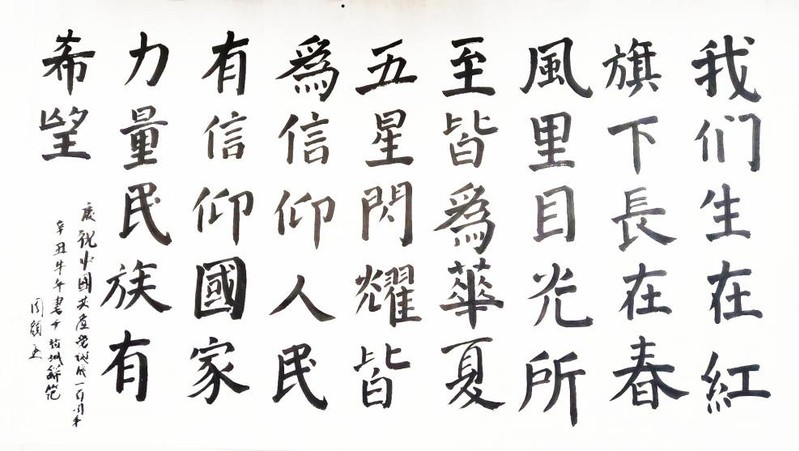 我们生在紅
旗下長在春
風里目光所
至皆爲華夏
五星閃耀皆
爲信仰人民
有信仰國家
力量民族有
希望
慶祝中國共産党誕辰一百周年
辛丑牛年書于